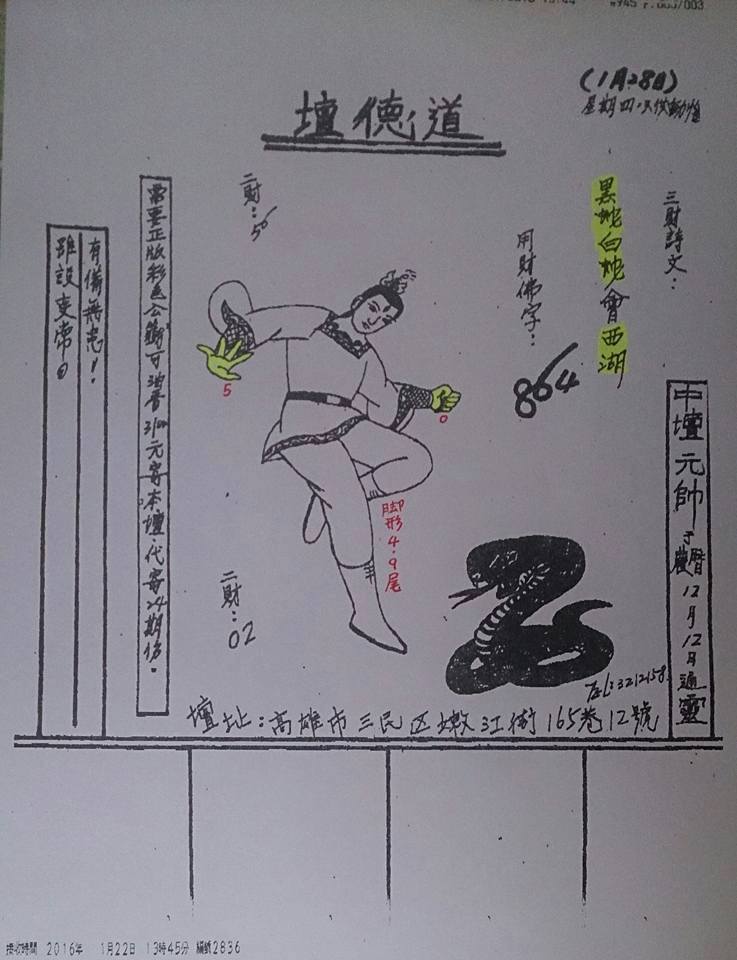 (1月28日)
壇德道
三財詩文：
黑蛇白蛇會西湖
用財佛字：
864
二財：56
5
0
脚形4.9尾
二財：02
中壇元帥于農曆12月12日通靈
需要正版彩色公
元寄本壇．代寄24期份。
有備無患！
雖設更常日
TEL:3212158
壇址：高雄市三民区嫩江街165巷12號
接收時間 2016年 1月22日 13時45分 編號2836